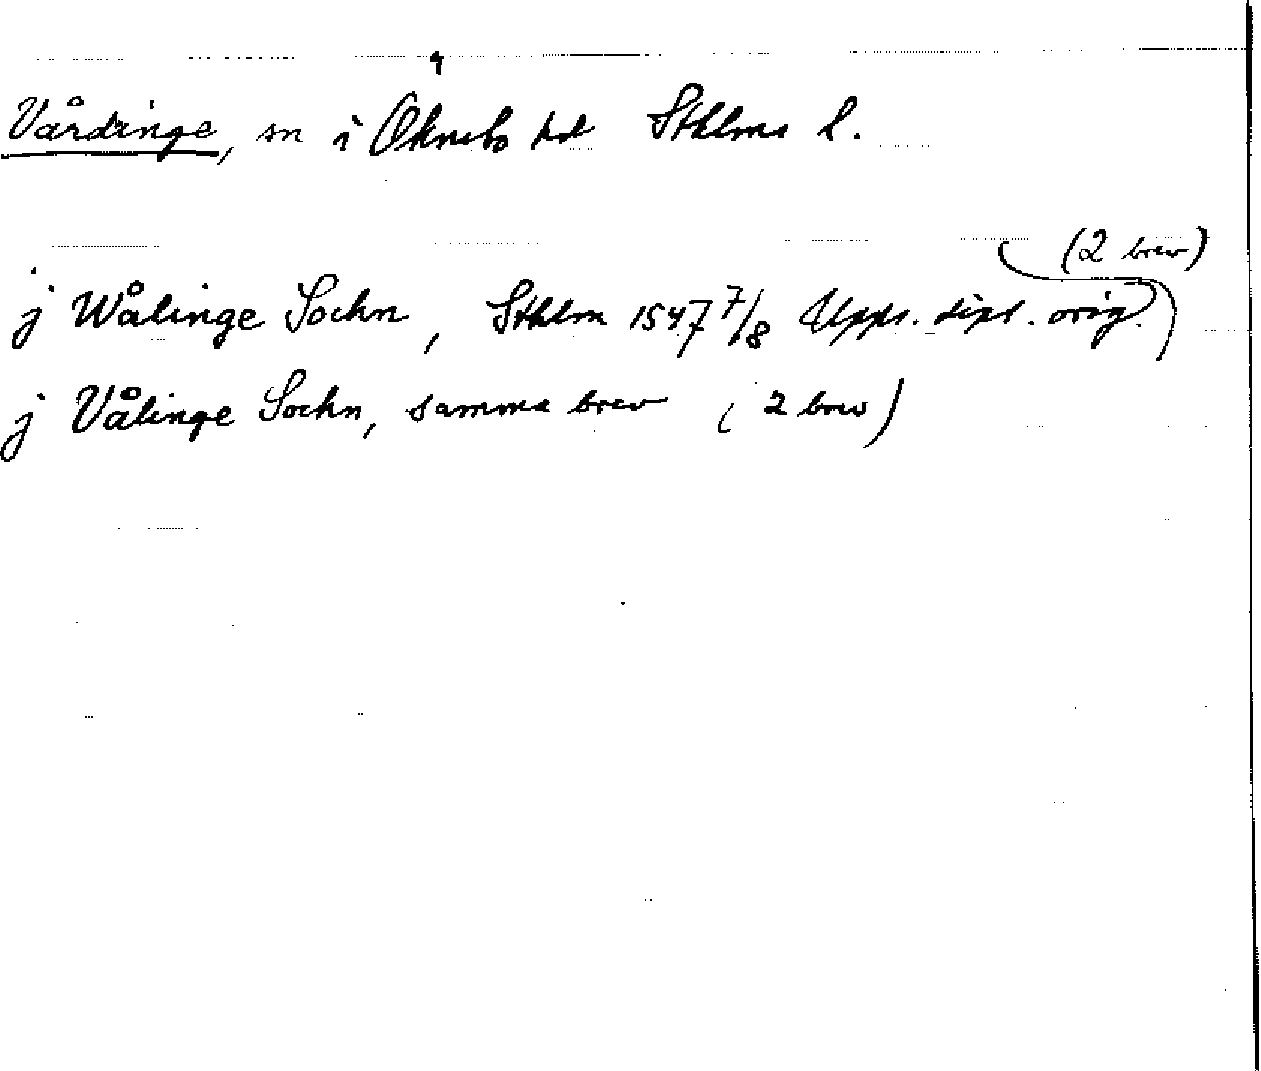 Vårdinge, sn i Öknebo hd Sthlms l.
(2 brev)
j Wålinge Sochn, Sthlm 1547 7/8 Upps. dipl. orig.)
j Vålinge Sochn, samma brev (2 brev)